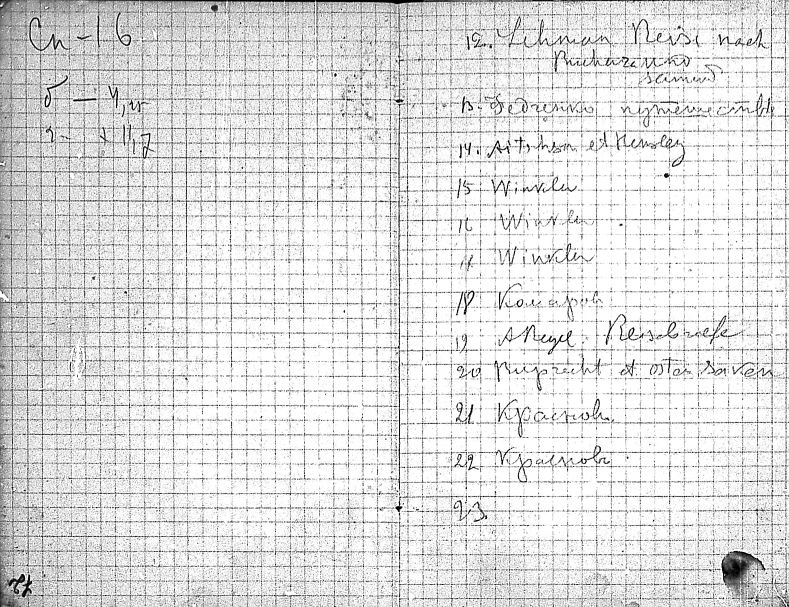 Сп -16
б — 4,
2- + 11,7
12. Lehman Reise nach
Buchara und
Samar
13. Федченко путешествіе
14. Aitchson et Hemsley
15 Winkler
16 Winkler
Winkler
18 Комаровъ
19 A Regel. Reisebriefe
20 Ruprecht et Osten Saken
21 Красновъ
22 Красновъ.
23.